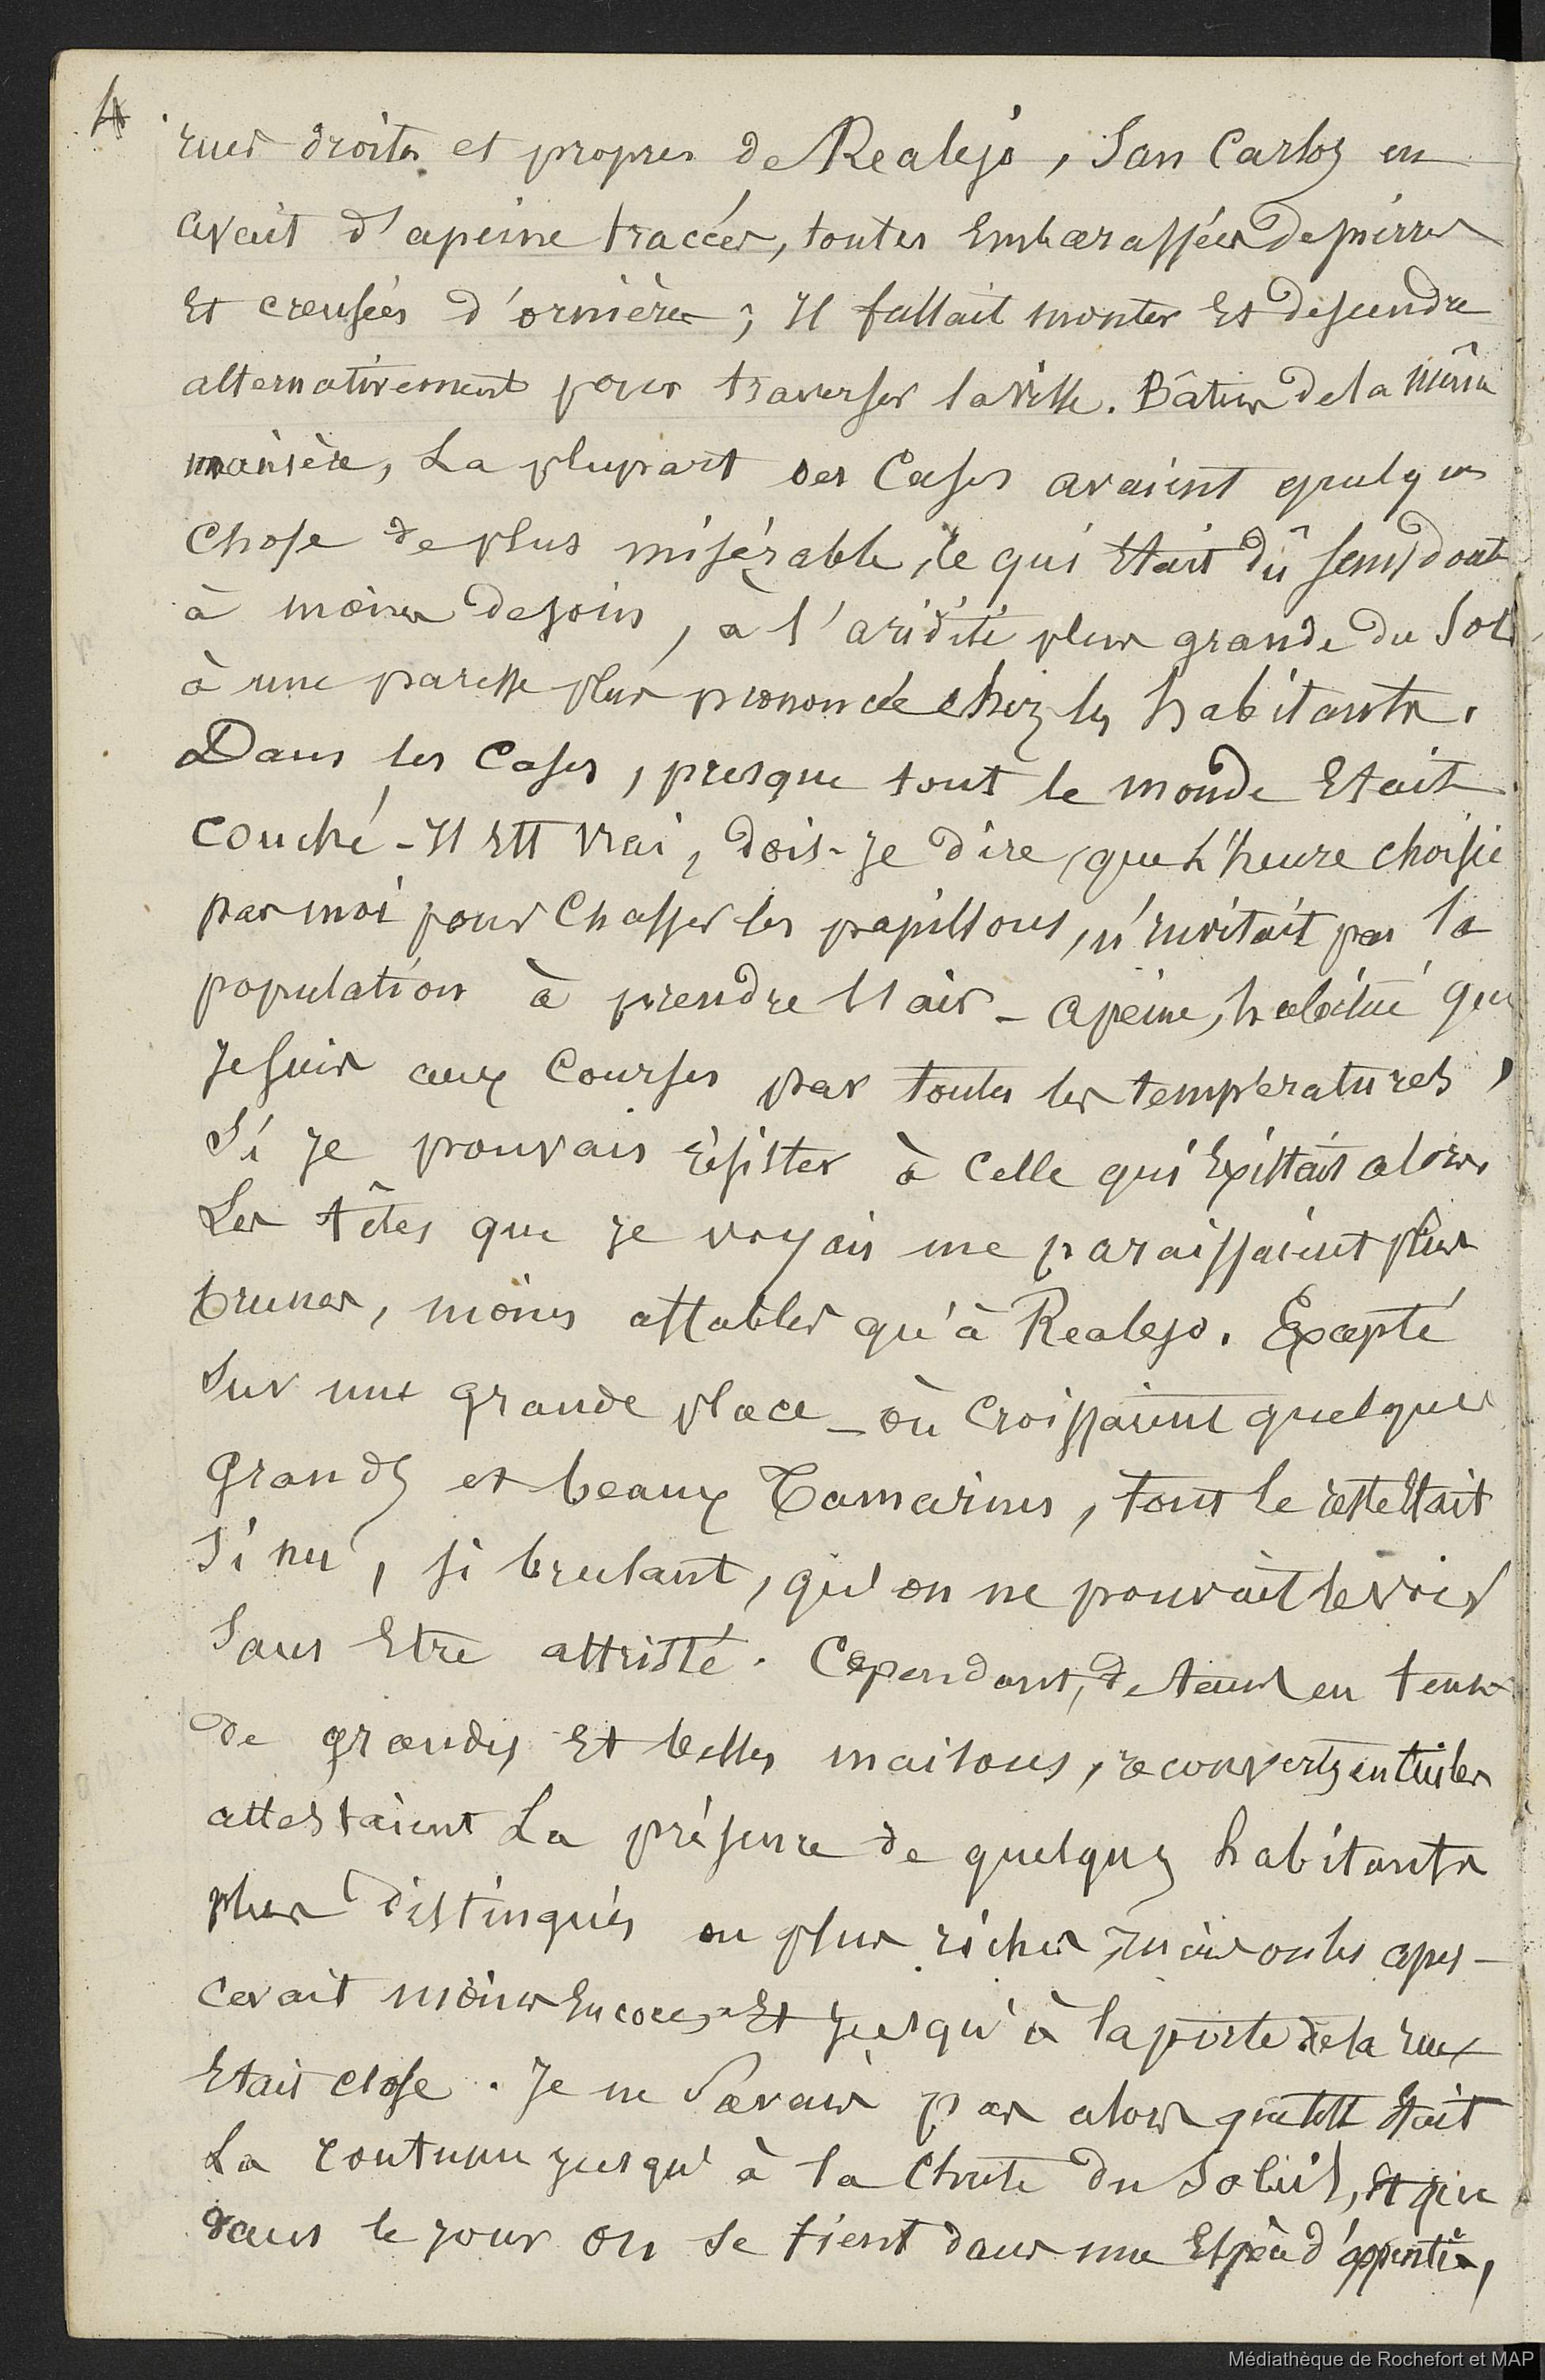 4
rues droites et propres de Realejo, San Carlos en
avait d'apeine tracées, toutes Embarassées de pierres
Et creusées d'ornières ; Il fallait monter Et descendre
alternativement pour traverser la ville. Bâties de la même
manière, La plupart des Cases avaient quelque
chose de plus misérable, ce qui Etait dû sans doute
à moins de soins, à l'aridité plus grande du Sol
à une paresse plus prononcée chez les habitants.
Dans les Cases, presque tout le monde Etait
couché - Il Est vrai, dois-je dire, que L'heure choisie
par moi pour Chasser les papillons, n'invitait pas la
population à prendre l'air - apeine, habitué que
Je suis aux Courses par toutes les températures,
Si je pouvais résister à Celle qui Existait alors.
Les têtes que je voyais me paraissaient plus
brunes, moins affables qu'à Realejo. Excepté
Sur une grande place - où Croissaient quelques
grands et beaux Tamarins, tout le reste Etait
Si nu, si brulant, qu'on ne pouvait le voir
Sans Etre attristé. Cependant, de tems en tems
de grandes Et belles maisons, recouvertes en tuiles
attestaient La présence de quelques habitants
plus distingués ou plus riches, mais on les aper-
cevait moins Encore, Et jusqu'à la porte de la rue
Etait close. Je ne Savais pas alors que telle Etait
La coutume jusqu'à la Chute du Soleil, Et que
dans le jour on se tient dans une Espèce d'appentis,
Médiathèque de Rochefort et MAP